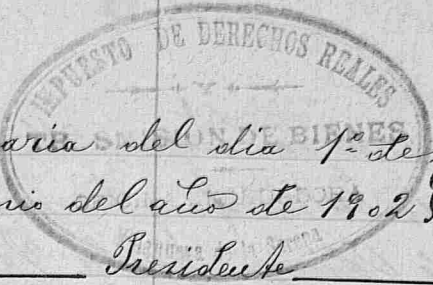 IMPUESTO DE DERECHOS REALES
BIENES
aria del dia 1º de
nio del año de 1902
Presidente